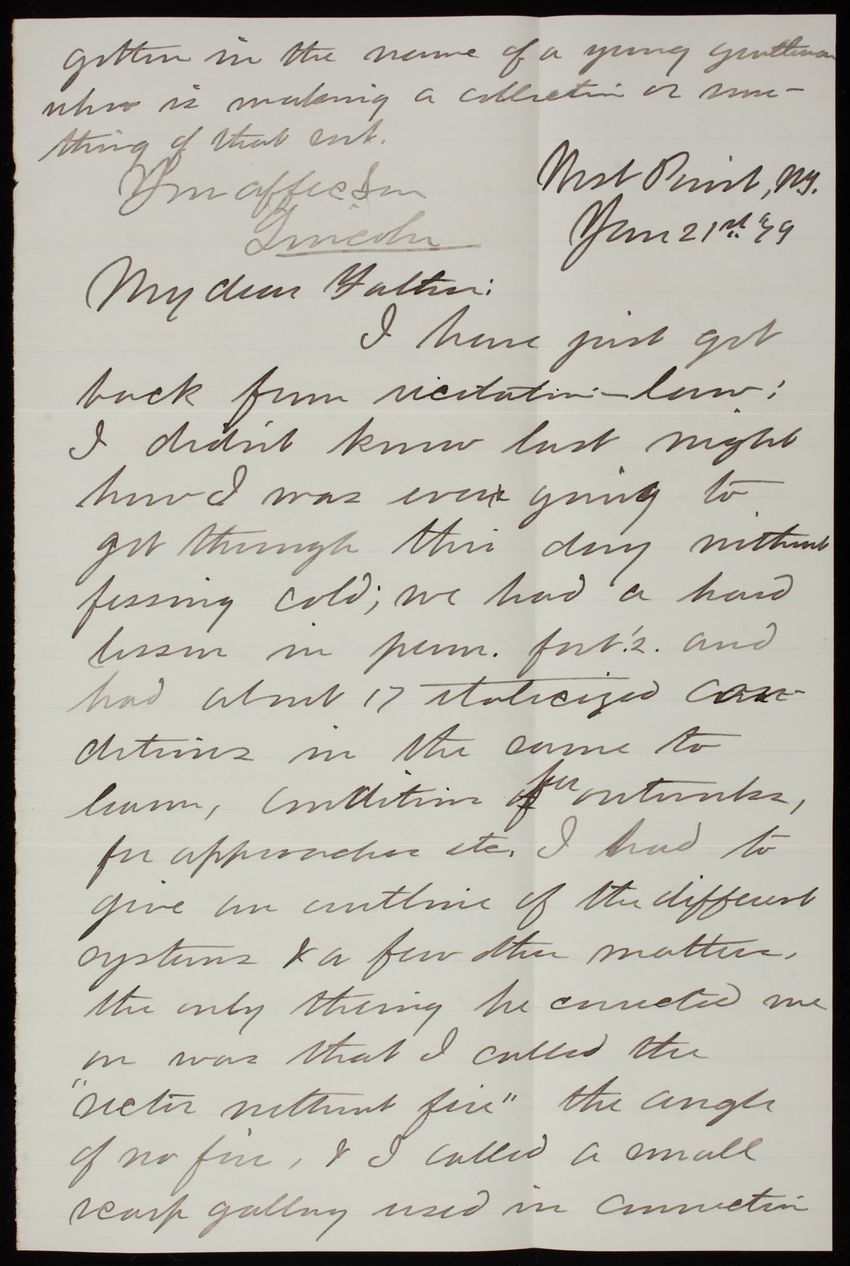 gotten in the name of a young gentleman
who is making a collection or some-
thing of that sort.
Your affec. Son
Lincoln
West Point, NY.
Jan 21st '79
My dear Father:
I have just got
back from recitation - law;
I didn't know last night
how I was ever going to
get through this day without
fessing cold; we had a hard
lesson in perm. fort.'s. and
had about 17 italicized con-
ditions in the same to
learn, conditions for outworks,
for approaches etc. I had to
give an outline of the different
systems & a few other matters.
the only thing he corrected me
on was that I called the
"sector without fire" the angle
of no fire, & I called a small
scarp gallery used in connection